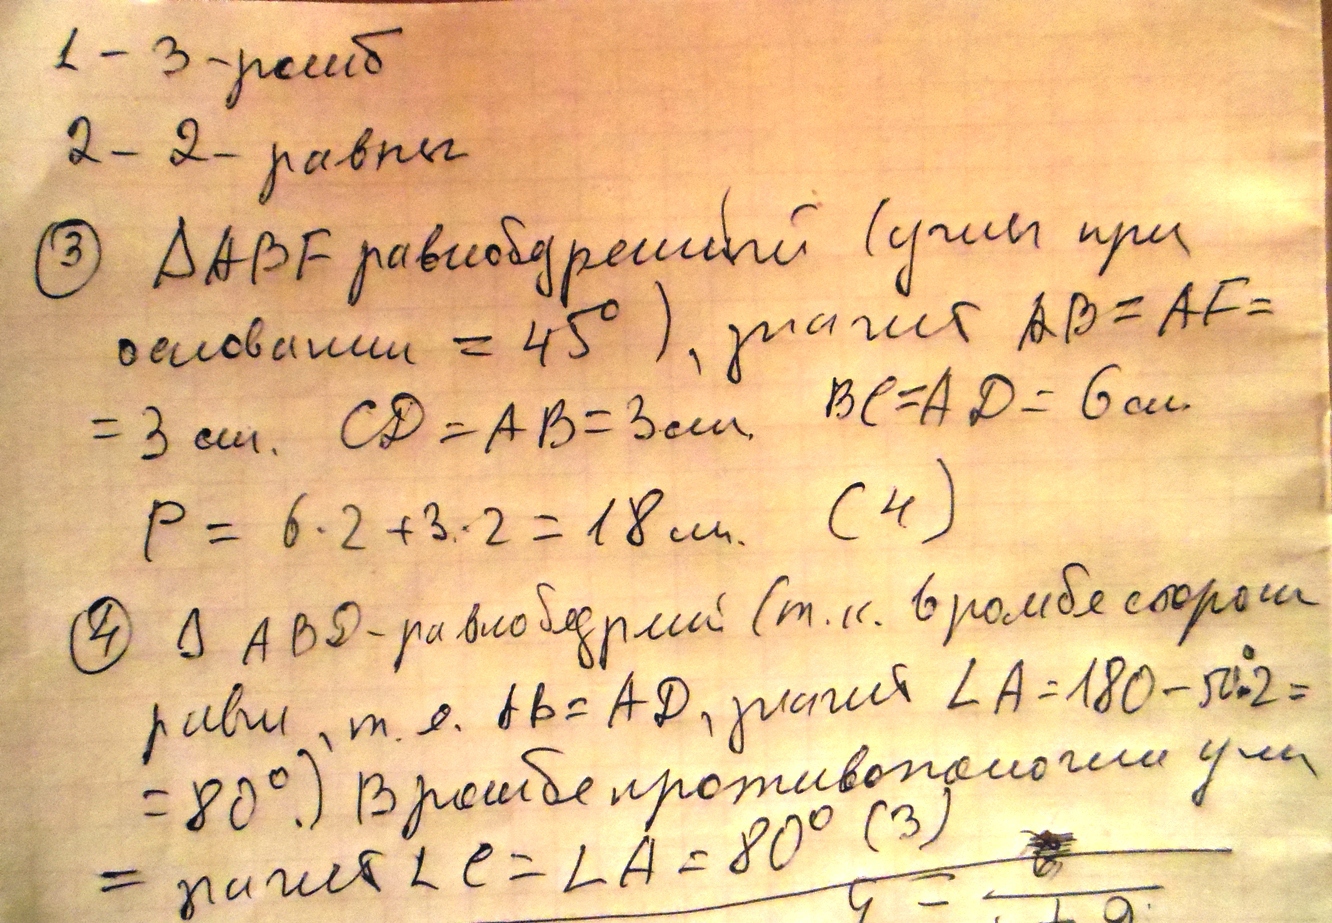 1 - 3 - ромб
2 - 2 - равны
③ ΔABF равнобедренный (углы при
основании = 45°), значит AB = AF =
= 3 см. CD = AB = 3 см. BC = AD = 6 см.
P = 6·2 + 3·2 = 18 см. (4)
④ Δ ABD - равнобедрный (т.к. в ромбе сторон
равны, т.е. AB = AD, значит ∠A = 180 - 50°·2 =
= 80°.) В ромбе противоположные углы
= значит ∠C = ∠A = 80° (3)